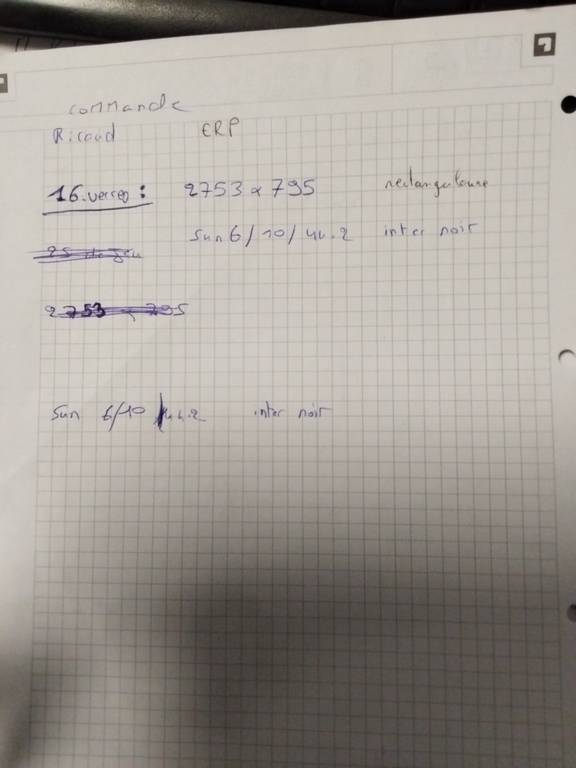 commande
Ricaud ERP
16 verres : 2753 x 795 rectangulaire
Sun 6/10/44.2 inter noir
2753 x 795
Sun 6/10 44.2 inter noir